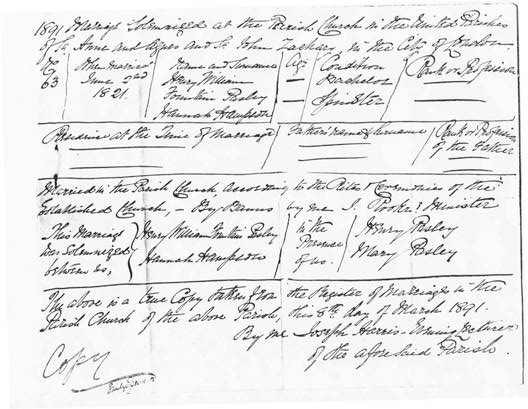 1891 Marriage Solemnized at the Parish Church in the United Parishes
of St Anne and Agnes and St John Zachary, in the City of London,
No When married Name and Surname Age Condition Rank or Profession
63 June 2nd Henry William — Bachelor
1821. Fountain Pesley — Spinster
Hannah
Residence at the Time of Marriage Father's name & surname Rank or Profession
of the Father
Married in the Parish Church according to the Rites & Ceremonies of the
Established Church, — By Banns by me J. Minister
This Marriage Henry William Pesley in the Henry Pesley
was Solemnized Presence
between us, Hannah of us. Mary Pesley
The above is a true Copy taken from the Register of Marriages in the
Parish Church of the above Parish, this 8th day of March 1891.
By me Joseph Harris
of the aforesaid Parish.
Copy